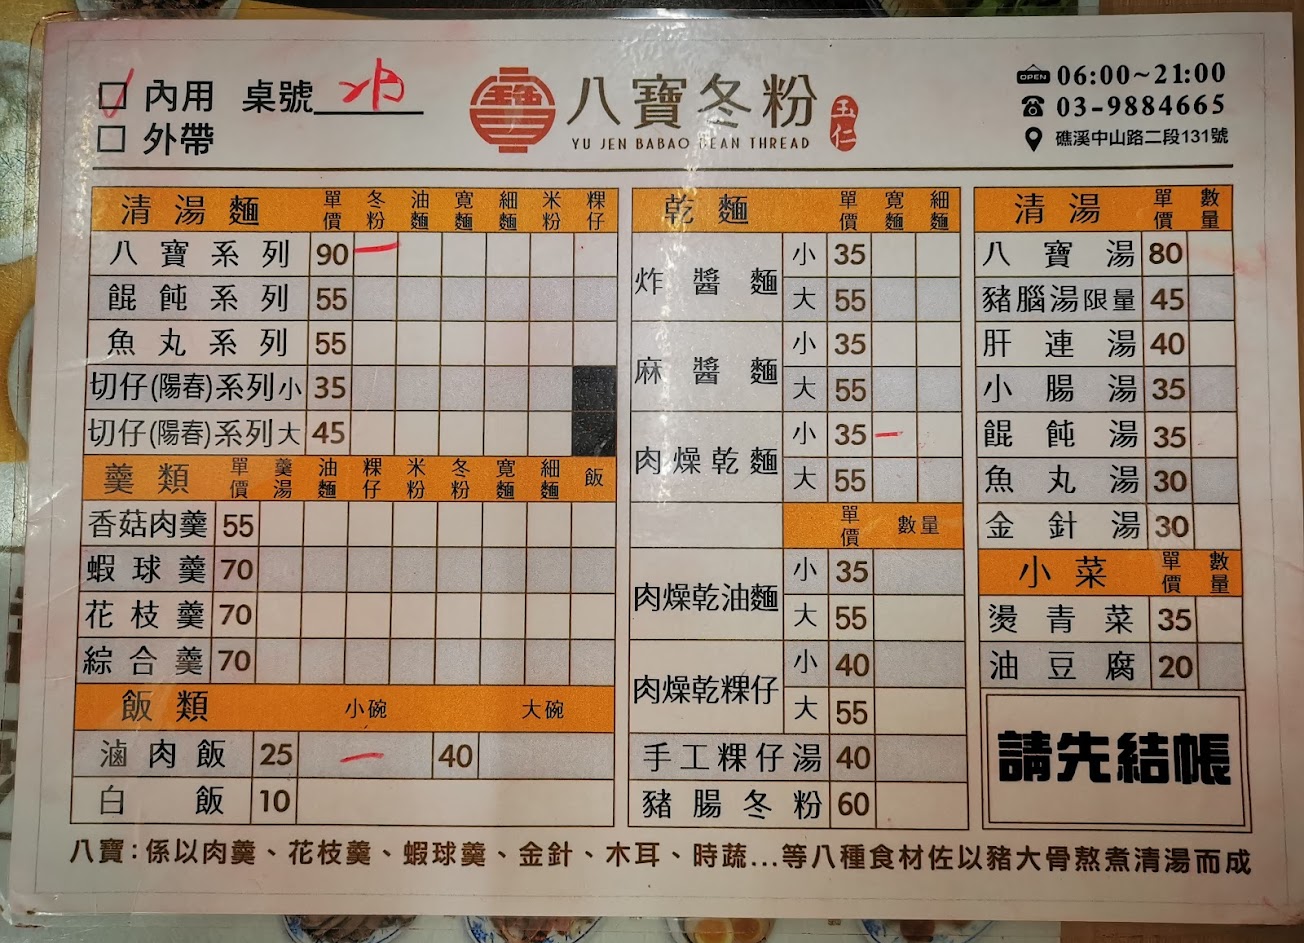 內用 桌號 内
外帶
八寶冬粉
玉仁
YU JEN BABAO BEAN THREAD
OPEN 06:00~21:00
03-9884665
礁溪中山路二段131號
清湯麵 單價 冬粉 油麵 寬麵 細麵 米粉 粿仔
八寶系列 90 一
餛飩系列 55
魚丸系列 55
切仔(陽春)系列小 35
切仔(陽春)系列大 45
羹類 單價 羹湯 油麵 粿仔 米粉 冬粉 寬麵 細麵 飯
香菇肉羹 55
蝦球羹 70
花枝羹 70
綜合羹 70
飯類 小碗 大碗
滷肉飯 25 一 40
白飯 10
乾麵 單價 寬麵 細麵
炸醬麵 小 35
大 55
麻醬麵 小 35
大 55
肉燥乾麵 小 35 一
大 55
單價 數量
肉燥乾油麵 小 35
大 55
肉燥乾粿仔 小 40
大 55
手工粿仔湯 40
豬腸冬粉 60
清湯 單價 數量
八寶湯 80
豬腦湯限量 45
肝連湯 40
小腸湯 35
餛飩湯 35
魚丸湯 30
金針湯 30
小菜 單價 數量
燙青菜 35
油豆腐 20
請先結帳
八寶:係以肉羹、花枝羹、蝦球羹、金針、木耳、時蔬...等八種食材佐以豬大骨熬煮清湯而成